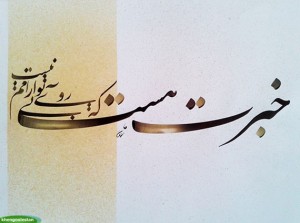 خبرت هست که بی روی تو آرامم نیست